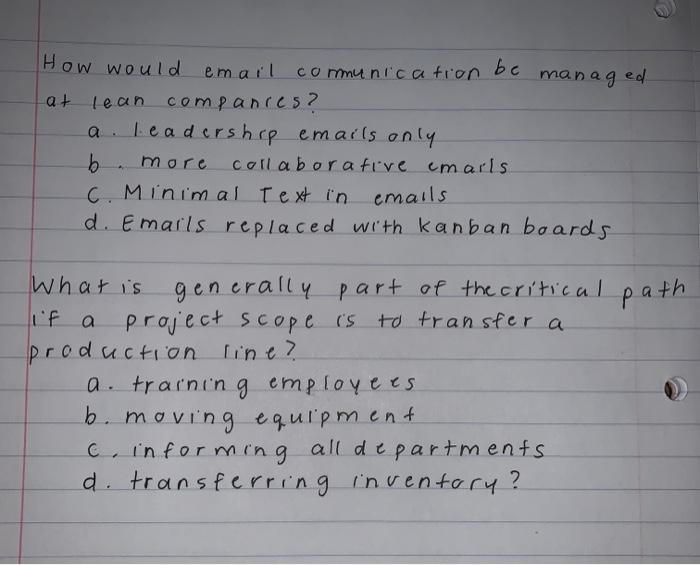 How would email communication be managed
at lean companies?
a. leadership emails only
b. more collaborative emails
c. Minimal Text in emails
d. Emails replaced with kanban boards
What is generally part of the critical path
if a project scope is to transfer a
production line?
a. training employees
b. moving equipment
c. informing all departments
d. transferring inventory?